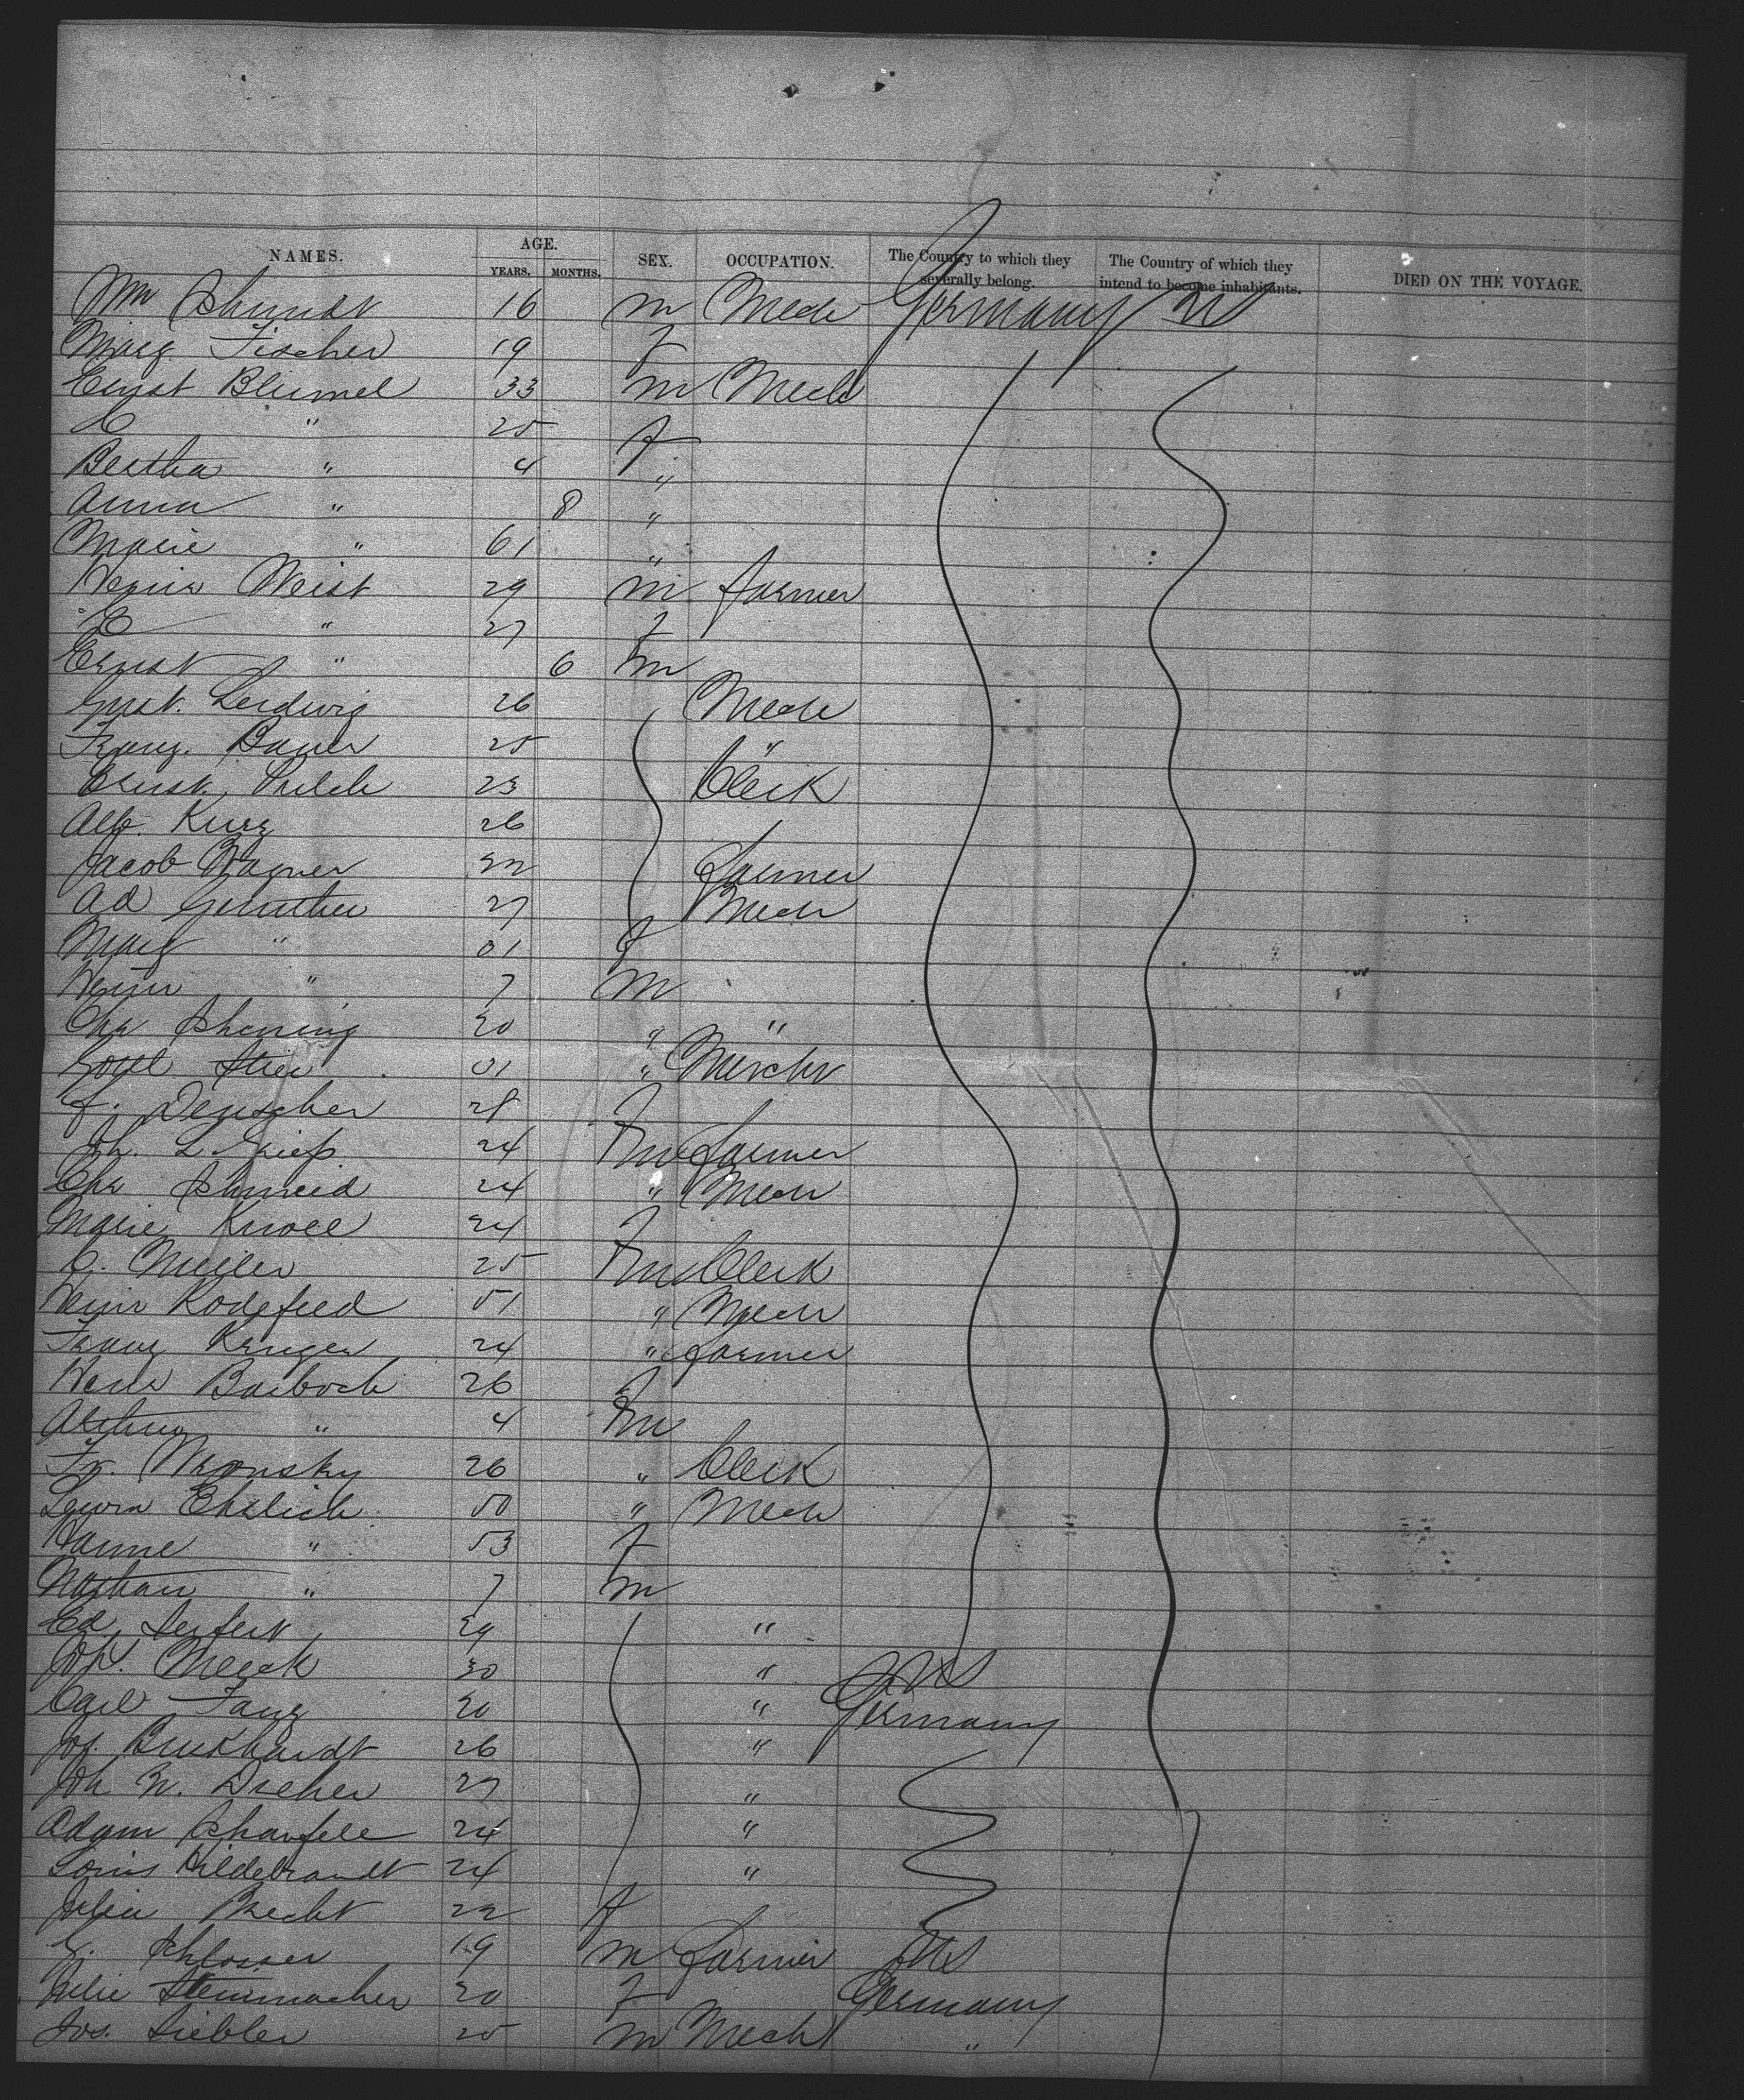 NAMES. AGE. YEARS. MONTHS. SEX. OCCUPATION. The Country to which they severally belong. The Country of which they intend to become inhabitants. DIED ON THE VOYAGE.
Wm Schmidt 16 m Mech Germany US
Marg. Fischer 19 f
Ernst Blumel 33 m Mech
C " 25 f
Bertha " 4 "
Anna " 8 "
Marie " 61 "
Heinr Weist 29 m farmer
C " 27 f
Ernst " 6 m
Gust. Ludwig 26 Mech
Franz. Bauer 25 "
Ernst. 23 Clerk
Alf. Kurz 26
Jacob Wagner 32 farmer
Ad Gunther 27 Mech
Marg " 31 f
Heinr " 7 m
Chr Schening 20 " "
Gottl Stier 31 " Mercht
F. Denscher 28 f
Joh. L. 24 m farmer
Chr Schmeid 24 " Mech
Marie Knoll 24 f
C. Muller 25 m Clerk
Heinr Rodefeld 51 " Mech
Franz Kruger 24 " farmer
Barboch 26 f
Arthur " 4 m
Fr. Wronsky 26 " Clerk
Ehrlich 50 " Mech
Hanne " 53 f
Nathan " 7 m
Ed. Seifert 29 "
Joh. Merck 30 " US
Carl Fanz 20 " Germany
Jos. Burkhardt 26 "
Joh W. Dreher 27 "
Adam Schaufele 24 "
Louis Hildebrandt 24 "
Julia Brecht 22 f
G. Schlosser 19 m farmer US
Julie Steinmacher 20 f Germany
Jos. Siebler 25 m Mech "